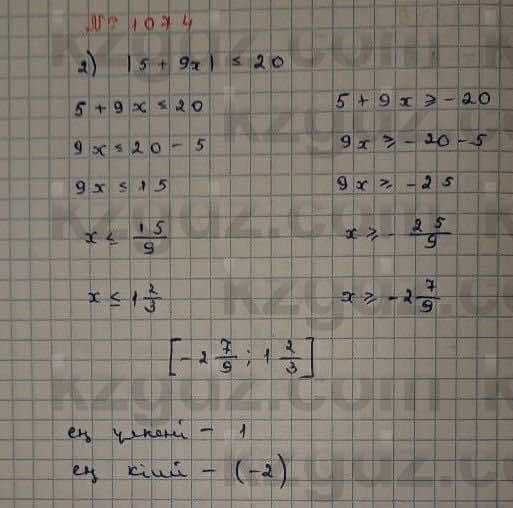 № 1074
2) |5 + 9x| ≤ 20
5 + 9x ≤ 20 5 + 9x ≥ -20
9x ≤ 20 - 5 9x ≥ -20 - 5
9x ≤ 15 9x ≥ -25
x ≤ 15/9 x ≥ - 25/9
x ≤ 1 2/3 x ≥ -2 7/9
[-2 7/9 ; 1 2/3]
ең үлкені - 1
ең кіші - (-2)
kzgdz.com